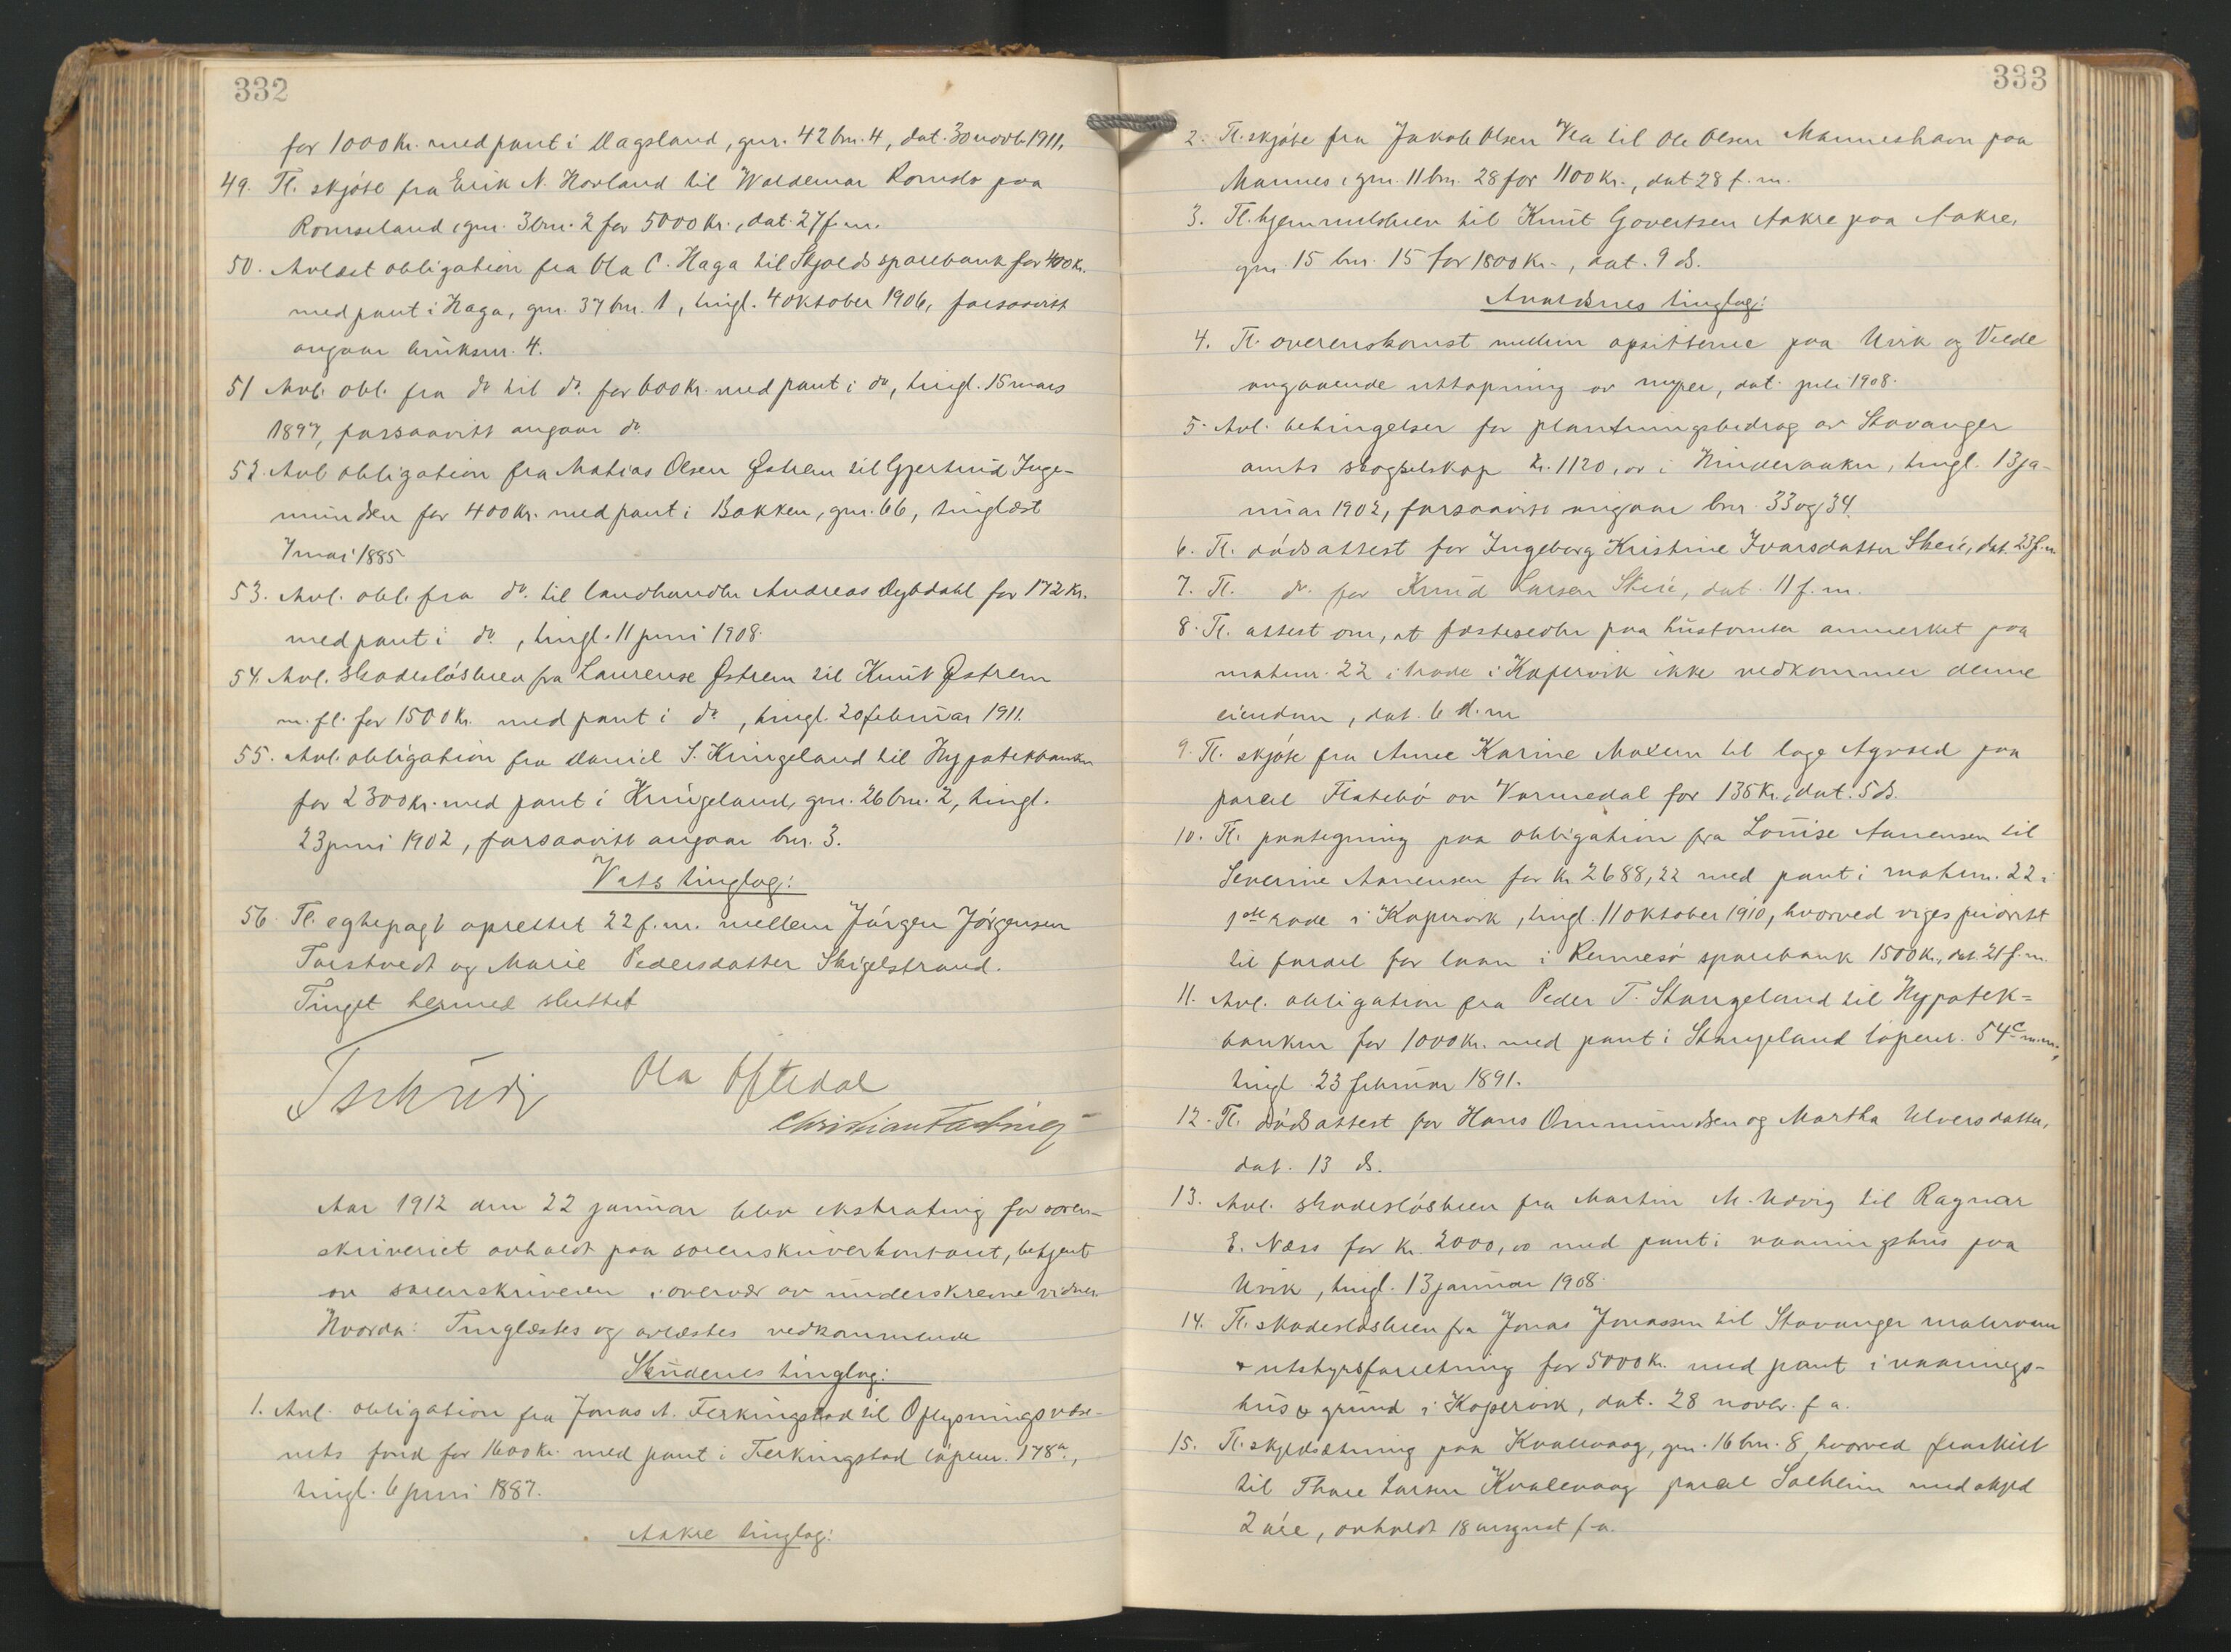 332
for 1000 kr. med pant i Dagsland, gnr. 42 bnr. 4, dat. 30 novb. 1911.
49. Tl. skjöte fra Erik N. Hovland til Waldemar Romslo paa
Romseland, gnr. 3 bnr. 2 for 5000 kr., dat. 27 f.m.
50. Avlæst obligation fra Ola C. Haga til Skjolds sparebank for 400 kr.
med pant i Haga, gnr. 37 bnr. 1, tingl. 4 oktober 1906, forsaavitt
angaar bruksnr. 4.
51 Avl. obl. fra do til do. for 600 kr. med pant i do, tingl. 15 mars
1897, forsaavitt angaar do.
52. Avl obligation fra Matias Olsen Østrem til Gjertrud Inge-
mundsen for 400 kr. med pant i Bakken, gnr. 66, tinglæst
7 mai 1885
53. Avl. obl. fra do. til landhandler Andreas Dybdahl for 172 kr.
med pant i do., tingl. 11 juni 1908.
54. Avl. skadeslösbrev fra Laurense Østrem til Knut Østrem
m. fl. for 1500 kr. med pant i do, tingl. 20 februar 1911.
55. Avl. obligation fra Daniel S. Kringeland til Hypotekbanken
for 2300 kr. med pant i Kringeland, gnr. 26 bnr. 2, tingl.
23 juni 1902, forsaavitt angaar bnr. 3.
Vats tinglag:
56 Tl. egtepagt oprettet 22 f.m. mellem Jörgen Jörgensen
Torstvedt og Marie Pedersdatter Skigelstrand.
Tinget hermed sluttet
Tschudi Ola Oftedal
Christian
Aar 1912 den 22 januar blev ekstrating for soren-
skriveriet avholdt paa sorenskriverkontoret, betjent
av sorenskriveren i overvær av underskrevne vidner.
Hvorda: Tinglæstes og avlæstes vedkommende
Skudenes tinglag:
1. Avl. obligation fra Jonas A. Ferkingstad til Oplysningsvæse-
nets fond for 1600 kr. med pant i Ferkingstad löpenr. 178a.,
tingl. 6 juni 1887.
Aakre tinglag:
333
2. Tl. skjöte fra Jakob Olsen Vea til Ole Olsen Manneshavn paa
Mannes, gnr. 11 bnr. 28 for 1100 kr., dat 28 f. m.
3. Tl. hjemmelsbrev til Knut Govertsen Aakre paa Aakre,
gnr. 15 bnr. 15 for 1800 kr., dat. 9 ds.
Avaldsnes tinglag:
4. Tl. overenskomst mellem opsitterne paa Utvik og Velde
angaaende uttapning av myrer, dat. juli 1908.
5. Avl. betingelser for plantningsbidrag av Stavanger
amts skogselskap kr. 1120,00 i Hindervaaken, tingl. 13 ja-
nuar 1902, forsaavitt angaar bnr. 33 og 34.
6. Tl. dödsattest for Ingeborg Kristine Ivarsdatter Skeie, dat. 23 f.m
7. Tl. do. for Knud Larsen Skeie, dat. 11 f.m.
8. Tl. attest om, at fæstesedler paa hustomter anmerket paa
matrnr. 22 i rode i Kopervik ikke vedkommer denne
eiendom, dat. 6 d.m
9. Tl. skjöte fra Anne Karine til lage paa
parcel Flatebö av Vormedal for 135 kr., dat. 5 ds.
10. Tl. paategning paa obligation fra Louise Aanensen til
Severine Aanensen for kr. 2688,22 med pant i matrnr. 22 i
1ste rode i Kopervik, tingl. 11 oktober 1910, hvorved viges prioritet
til fordel for laan i Rennesö sparebank 1500 kr., dat. 21 f.m.
11. Avl. obligation fra Peder T. Stangeland til Hypotek=
banken for 1000 kr. med pant i Stangeland löpenr. 54c m.m.,
tingl 23 februar 1891.
12. Tl. dödsattest for Hans Ommundsen og Martha Ulversdatter,
dat. 13 ds.
13. Avl. skadeslösbrev fra Martin M. Utvig til Ragnar
E. Næss for kr. 2000,00 med pant i vaaningshus paa
Utvik, tingl. 13 januar 1908.
14. Tl. skadeslösbrev fra Jonas Jonassen til Stavanger
& utstyrsforretning for 5000 kr. med pant i vaanings-
hus & grund i Kopervik, dat. 28 novbr. f a.
15. Tl. skyldsætning paa Kvalevaag, gnr. 16 bnr. 8, hvorved fraskilt
til Thore Larsen Kvalevaag parcel Solheim med skyld
2 öre, avholdt 18 august f.a.